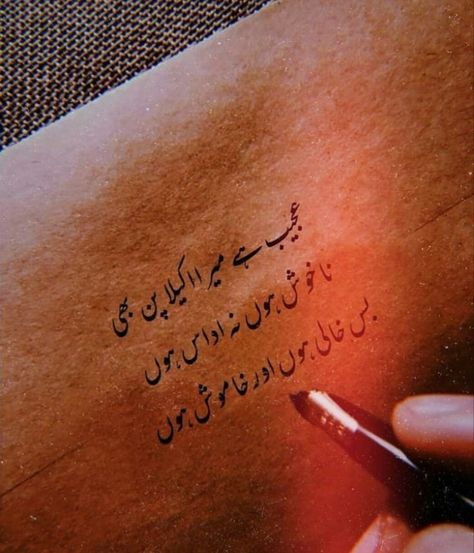 عجیب ہے میرا اکیلا پن بھی
نا خوش ہوں نہ اداس ہوں
بس خالی ہوں اور خاموش ہوں